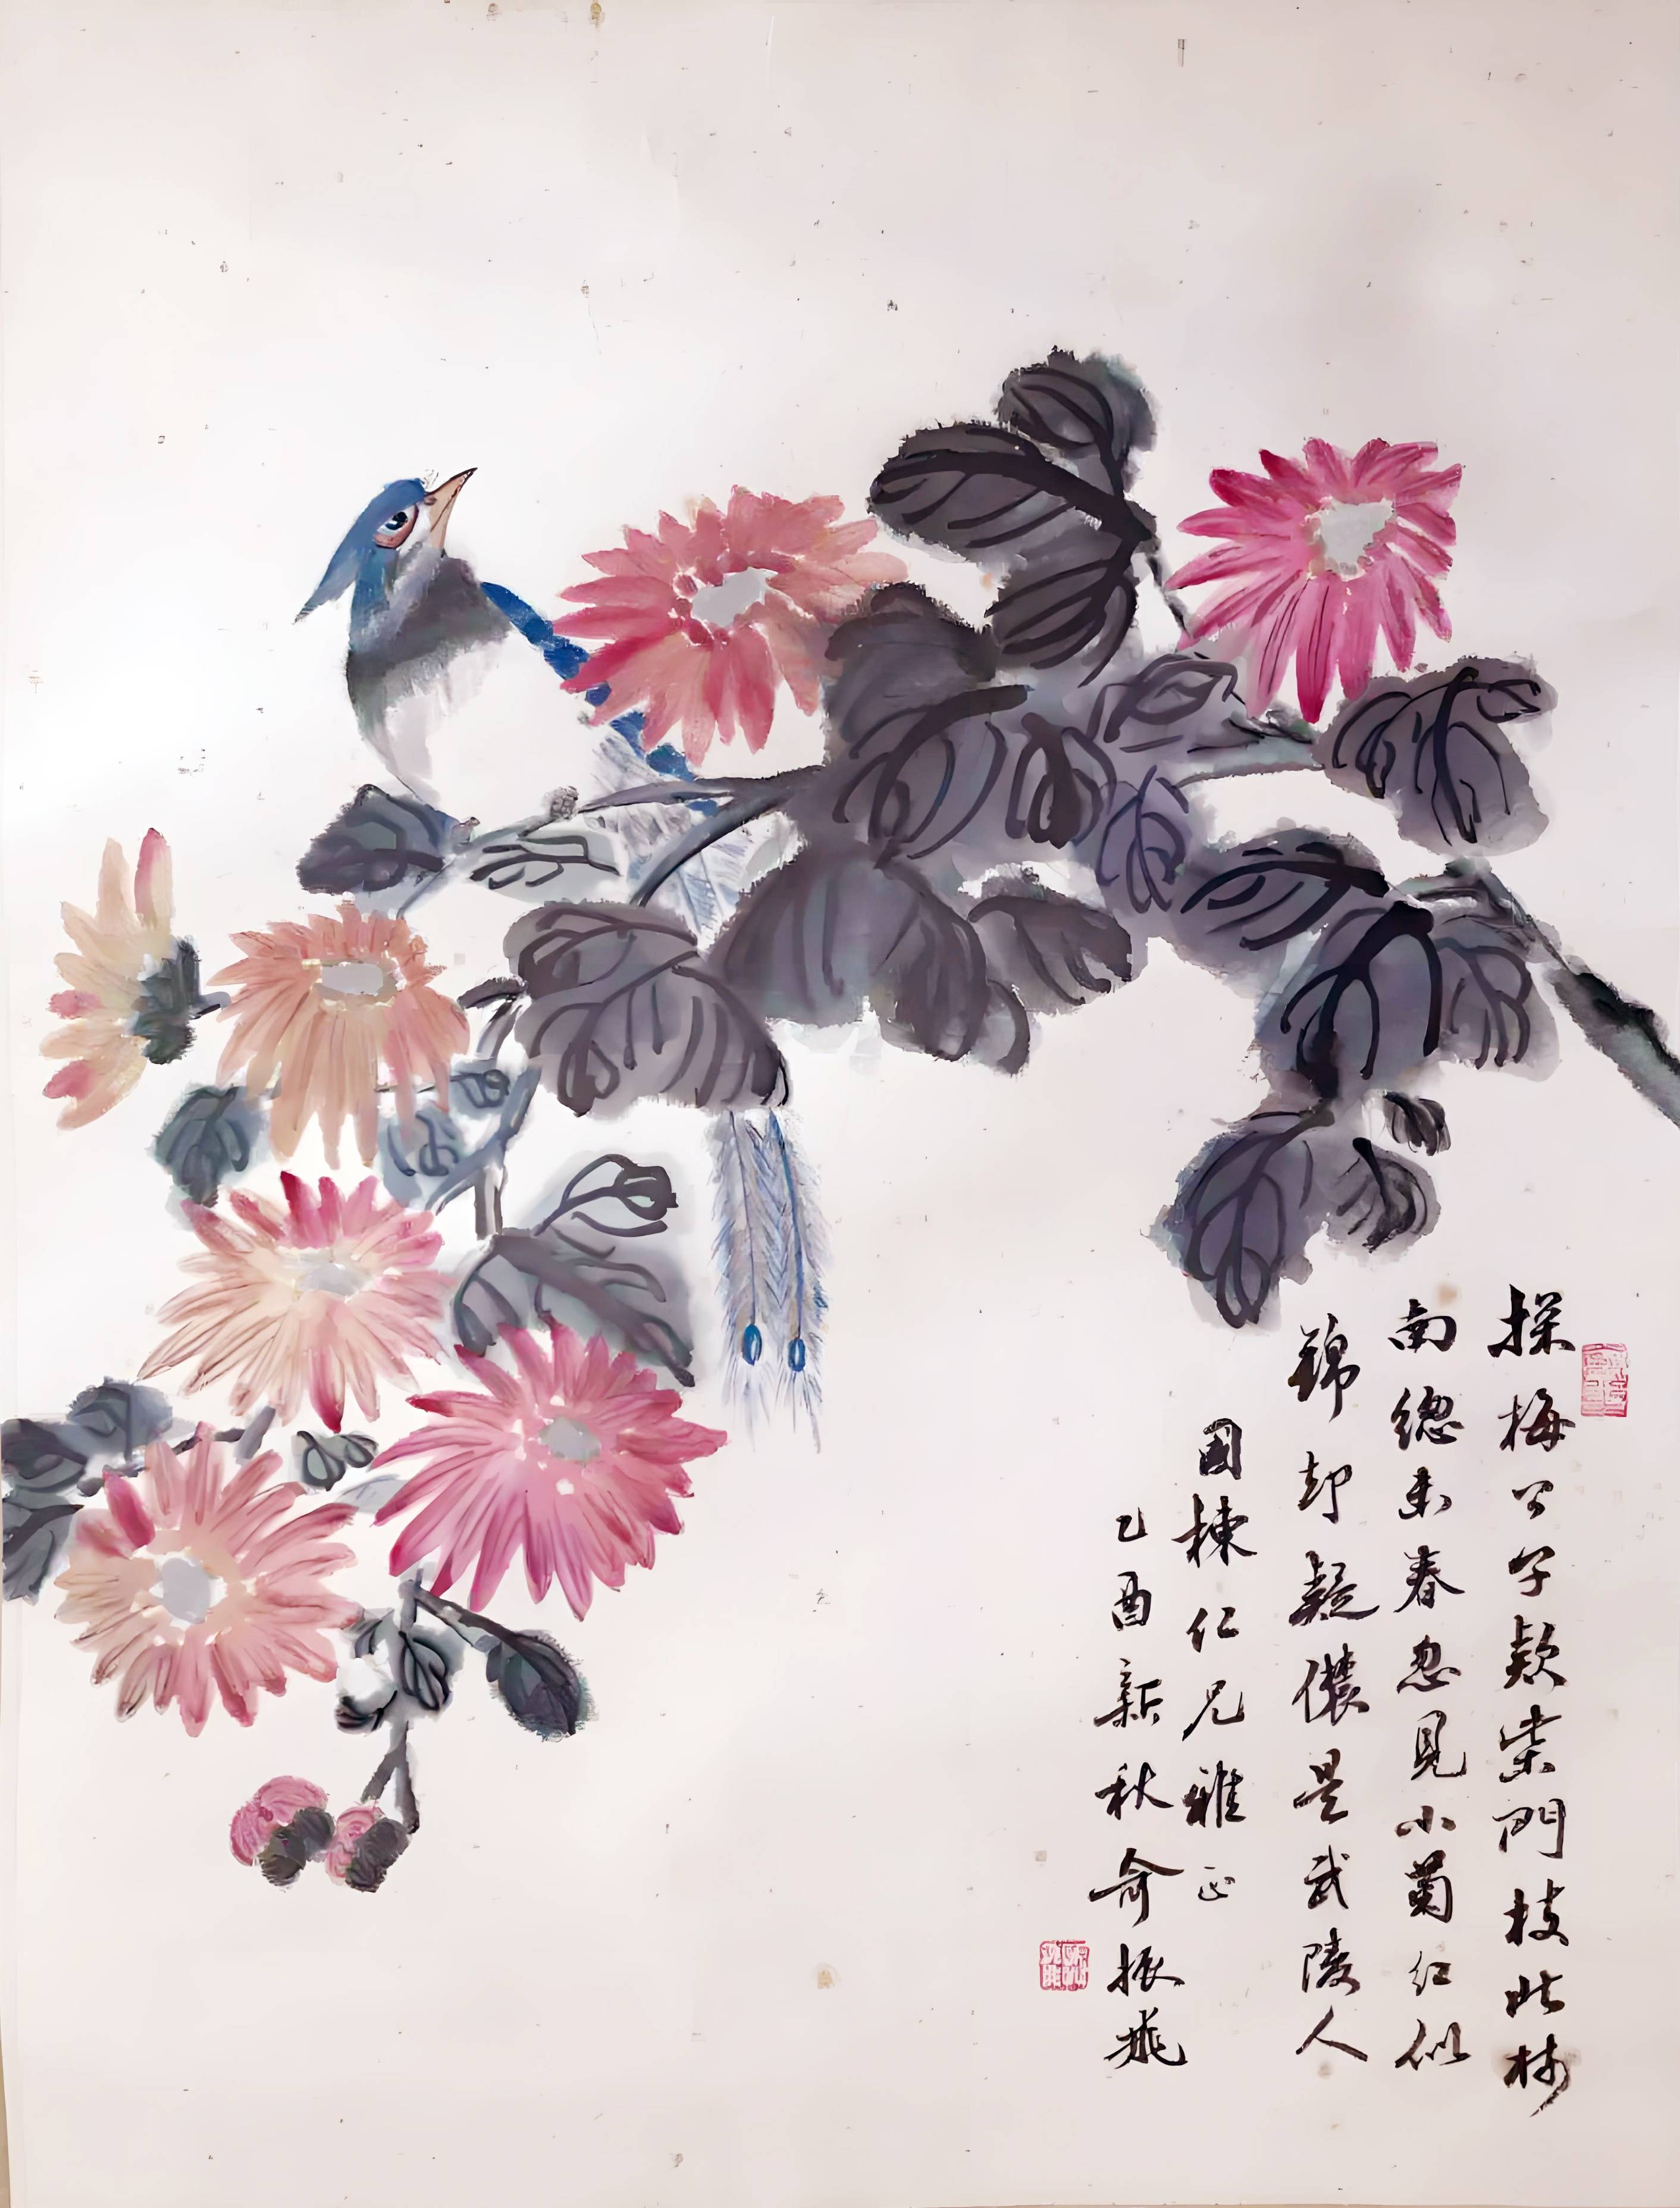 探梅公子款柴門枝北枝
南總未春忽見小菊紅似
錦却疑儂是武陵人
國棟仁兄雅正
乙酉新秋俞振飛